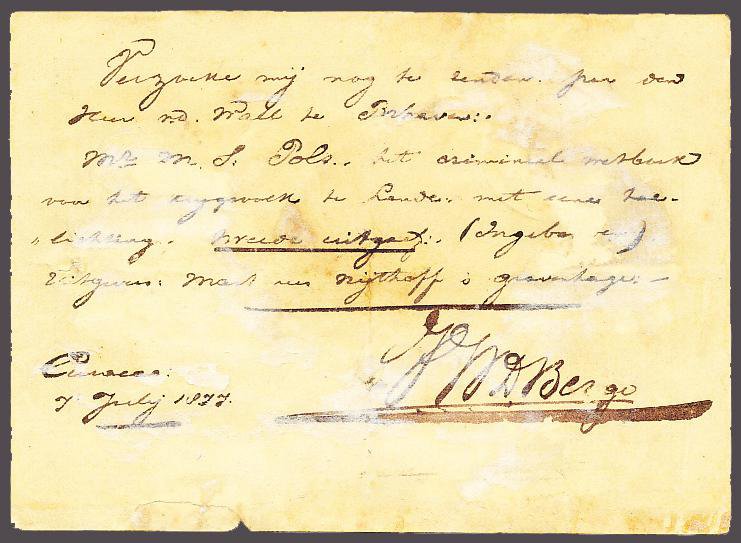 Verzoeke mij nog te zenden. van den
Heer v.d. Wall te
Mr M. S. Pols.. het crimineel wetboek
voor het krygsvolk te Lande. met eene toe-
„lichting. tweede uitgaef:. (Ingeb. en)
Uitgever: Mart nus Nijthoff s gravenhage: —
Curacao:
7 July 1877.
DBergo